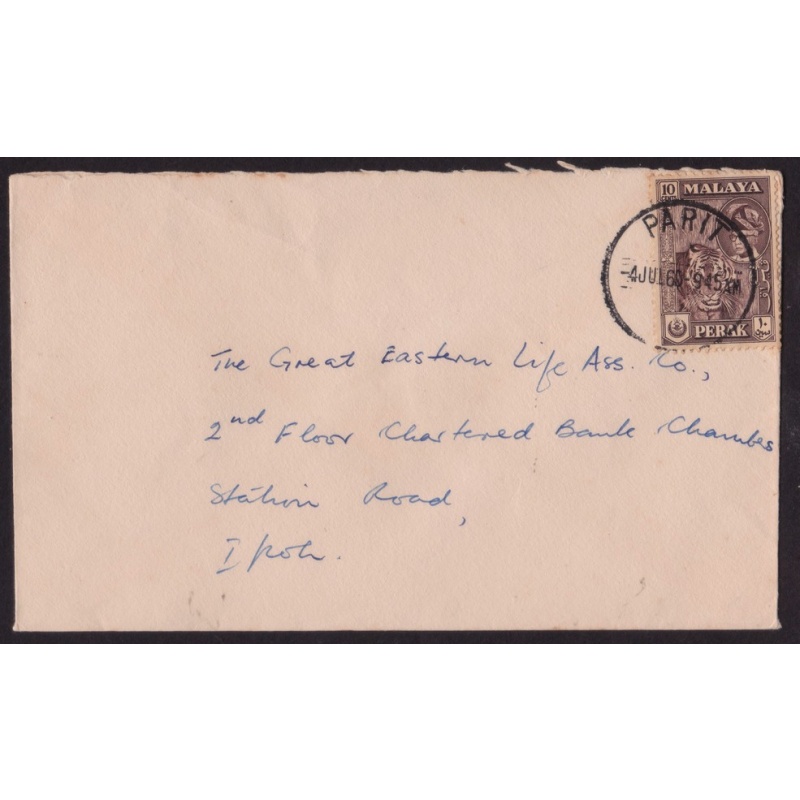 10 MALAYA
PARIT
4 JUL 60 945 AM
PERAK ١٠
The Great Eastern Life Ass. Co.,
2nd Floor Chartered Bank Chambes
Station Road,
Ipoh.